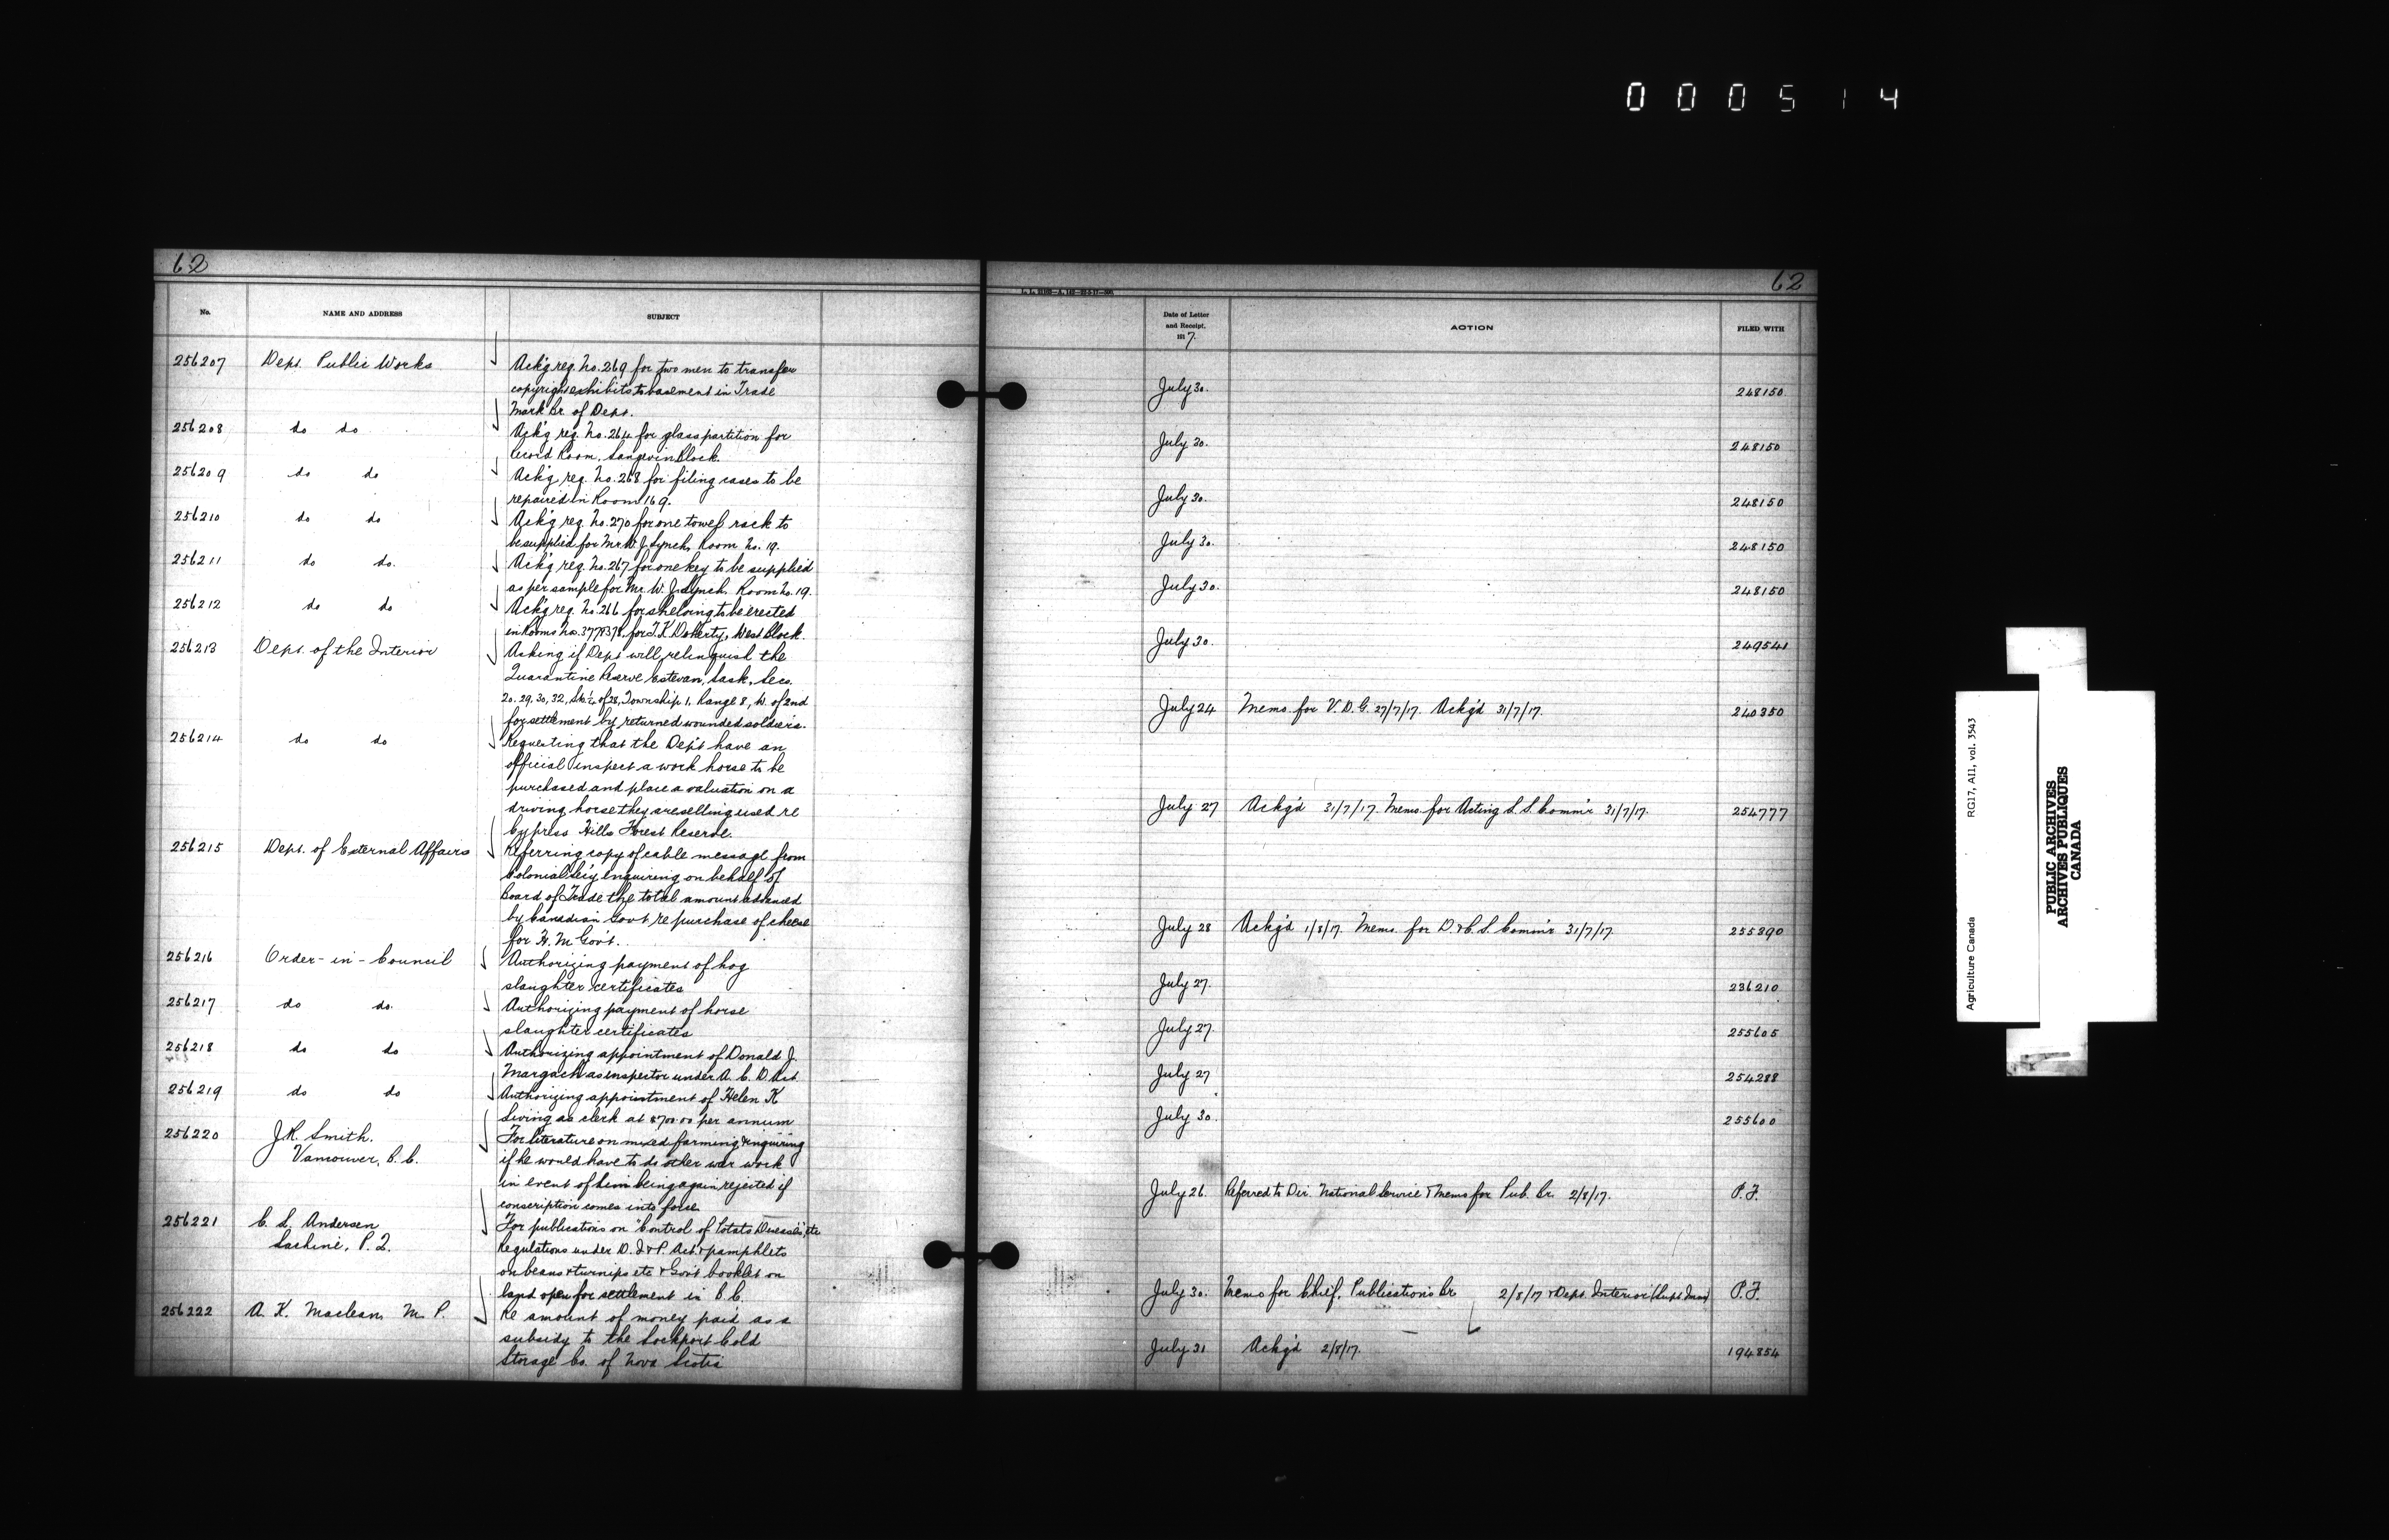 000514
62
No.
NAME AND ADDRESS
SUBJECT
256207 Dept. Public Works
Ack'g req. No. 269 for two men to transfer
copyright exhibits to basement in Trade
Mark Br. of Dept.
256208 do do
Ack'g req. No. 264 for glass partition for
Record Room, Langevin Block.
256209 do do
Ack'g req. No. 268 for filing cases to be
repaired in Room 169.
256210 do do
Ack'g req. No. 270 for one towel rack to
be supplied for Mr. W. J. Lynch, Room No. 19.
256211 do do.
Ack'g req. No. 267 for one key to be supplied
as per sample for Mr. W. J. Lynch, Room No. 19.
256212 do do
Ack'g req. No. 266 for shelving to be erected
in Rooms No. 377 & 378, for T. K. Doherty, West Block.
256213 Dept. of the Interior
Asking if Dept will relinquish the
Quarantine Reserve Estevan, Sask, Secs.
20, 29, 30, 32, of 28, Township 1, Range 8, W. of 2nd
for settlement by returned wounded soldiers.
256214 do do
Requesting that the Dep't have an
official inspect a work horse to be
purchased and place a valuation on a
driving horse they are selling used re
Cypress Hills Forest Reserve.
256215 Dept. of External Affairs
Referring copy of cable message from
Colonial Sec'y enquiring on behalf of
Board of Trade the total amount advanced
by Canadian Govt re purchase of cheese
for H. M. Gov't.
256216 Order-in-Council
Authorizing payment of hog
slaughter certificates
256217 do do.
Authorizing payment of horse
slaughter certificates
256218 do do
Authorizing appointment of Donald J.
Margach as inspector under A. C. D. Act.
256219 do do
Authorizing appointment of Helen K
as clerk at $700.00 per annum
256220 J. R. Smith.
Vancouver, B. C.
For literature on mixed farming & enquiring
if he would have to do other war work
in event of him being again rejected if
conscription comes into force.
256221 C. S. Andersen
Lachine, P. Q.
For publications on "Control of Potato Diseases", etc
Regulations under D. I & P. Act. & pamphlets
on beans & turnips etc & Gov't booklet on
land open for settlement in B. C.
256222 A. K. Maclean, M. P.
Re amount of money paid as a
subsidy to the Lockport Cold
Storage Co. of Nova Scotia
62
Date of Letter
and Receipt.
191 7.
ACTION
FILED WITH
July 30. 248150
July 30. 248150
July 30. 248150
July 30. 248150
July 30. 248150
July 30. 249541
July 24 Memo. for V. D. G. 27/7/17. Ackg'd 31/7/17. 240350
July 27 Ackg'd 31/7/17. Memo. for Acting L. S. Comm'r 31/7/17. 254777
July 28 Ackg'd 1/8/17. Memo. for D. & C. S. Comm'r 31/7/17. 255390
July 27. 236210
July 27. 255605
July 27 254288
July 30. 255600
July 26. Referred to Dir. National Service & Memo for Pub. Br. 2/8/17. P. F.
July 30. Memo for Chief, Publications Br 2/8/17 & Dept. Interior (Supt Imm) P. F.
July 31 Ackg'd 2/8/17. 194854
Agriculture Canada RG17, AII, vol. 3543
PUBLIC ARCHIVES
ARCHIVES PUBLIQUES
CANADA